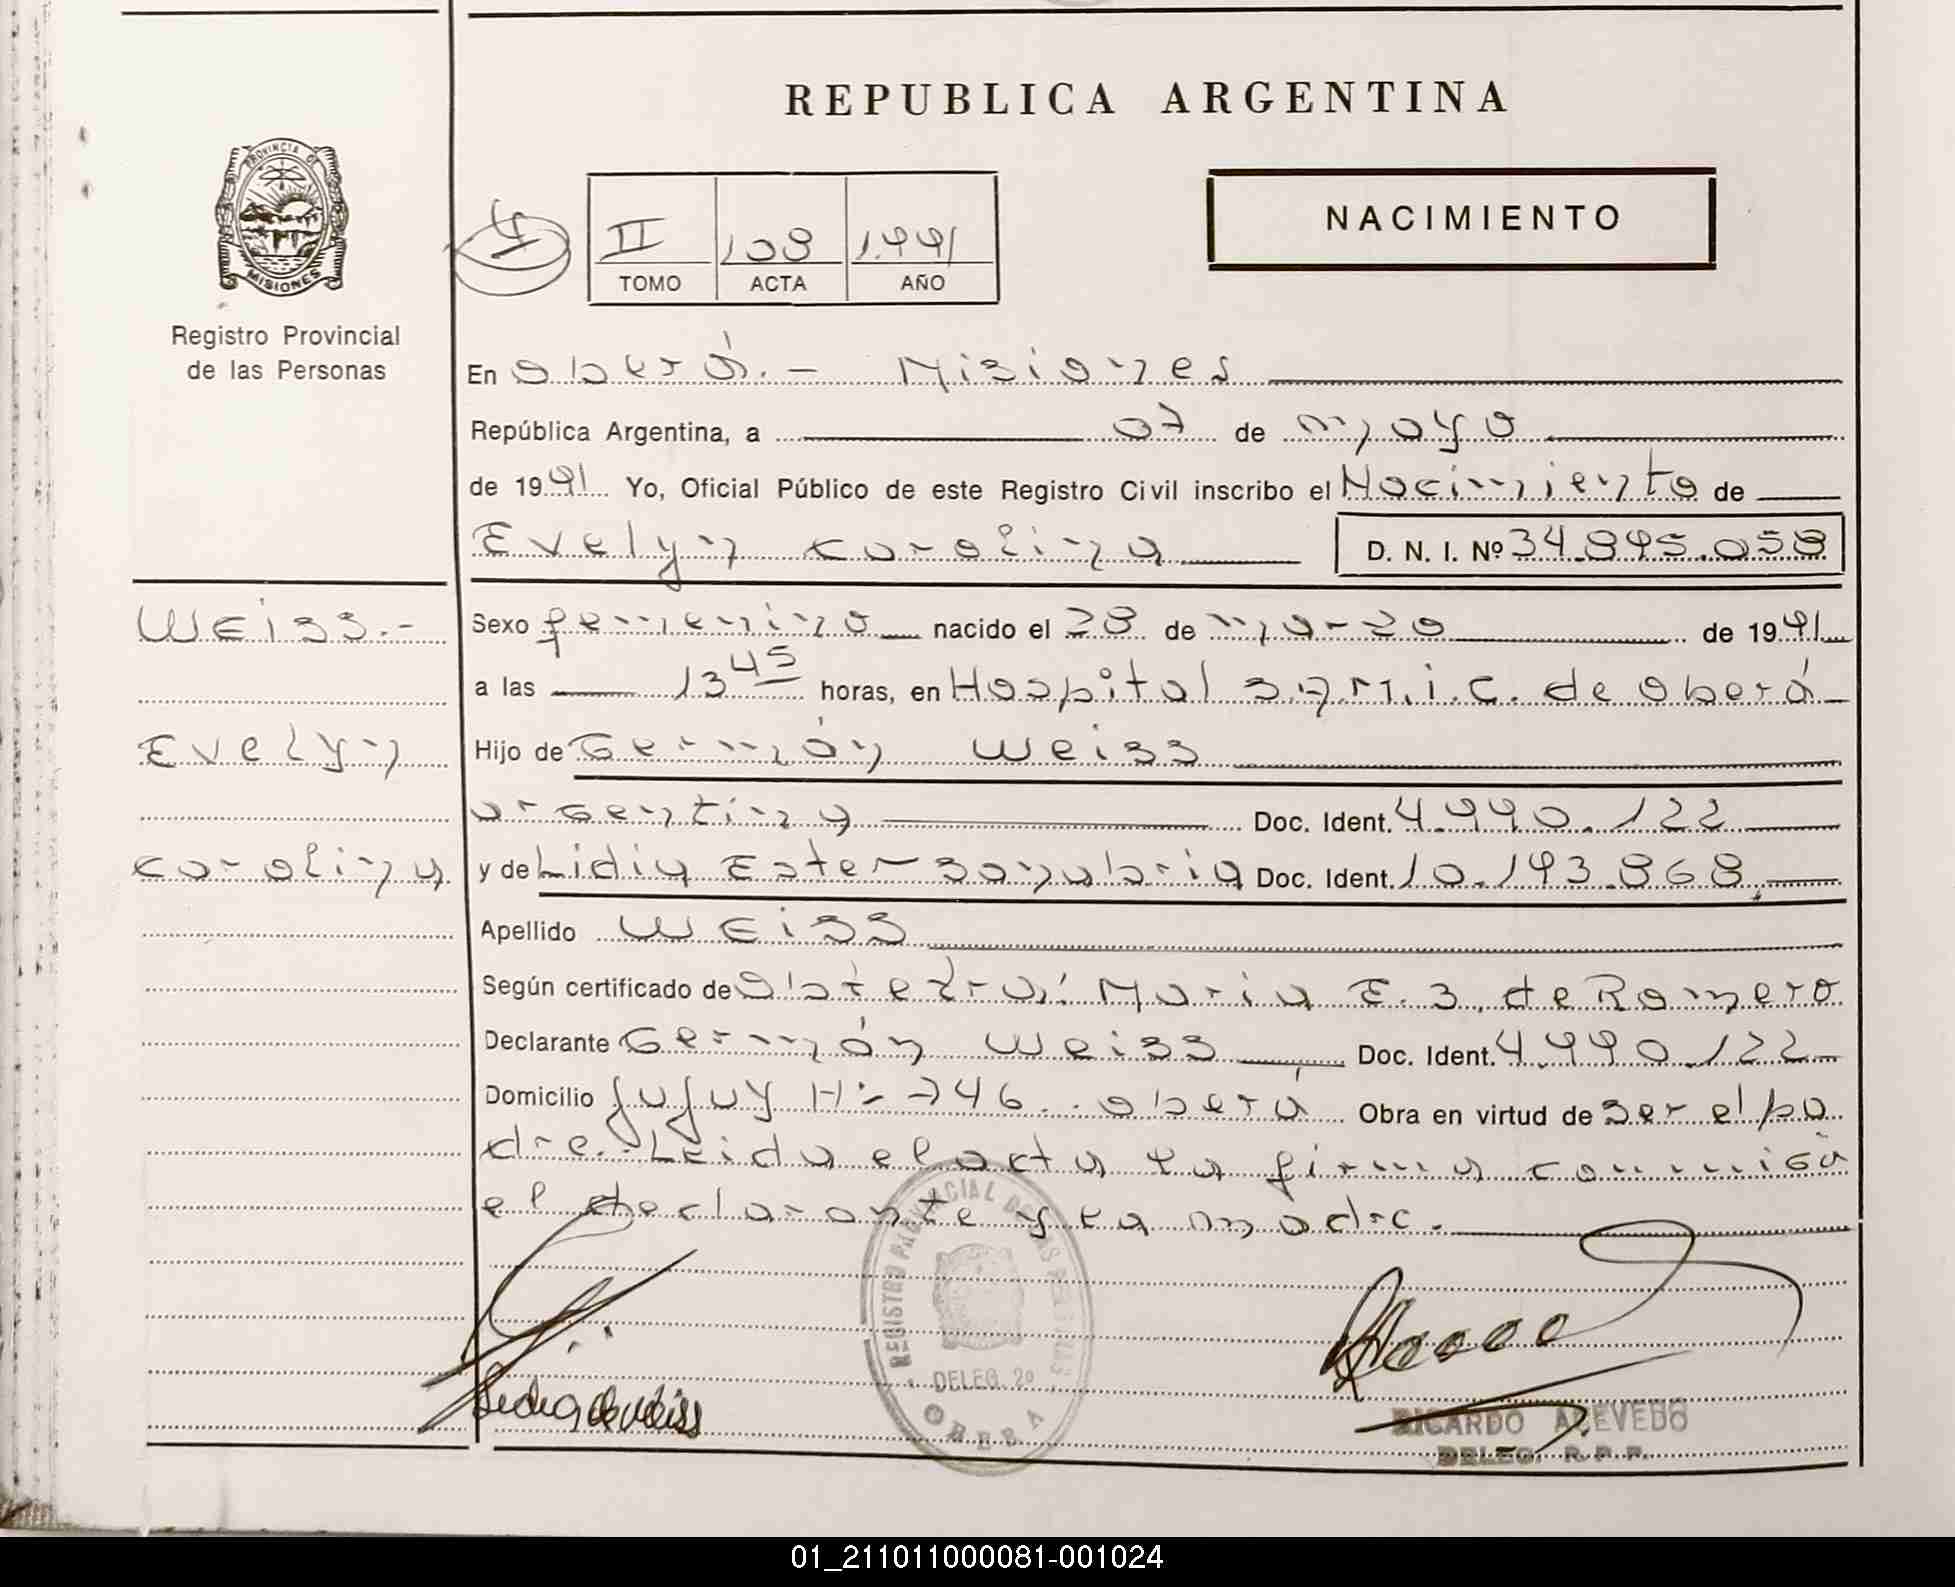 REPUBLICA ARGENTINA
PROVINCIA DE
MISIONES
Registro Provincial
de las Personas
II 108 1.991
TOMO ACTA AÑO
NACIMIENTO
En Oberá.- Misiones
República Argentina, a 07 de mayo
de 1991 Yo, Oficial Público de este Registro Civil inscribo el Nacimiento de
Evelyn Carolina D. N. I. Nº 34.895.058
Weiss.-
Evelyn
Carolina
Sexo femenino nacido el 28 de marzo de 1991
a las 13 45 horas, en Hospital S.A.M.I.C. de Oberá
Hijo de Germán Weiss
argentina Doc. Ident. 4.990.122
y de Lidia Ester Sanabria Doc. Ident. 10.193.868
Apellido Weiss
Según certificado de Obstetra: Maria E. S. de Romero
Declarante Germán Weiss Doc. Ident. 4.990.122
Domicilio Jujuy Nº 746. Oberá Obra en virtud de ser el pa
dre.- Leida el acta la firma conmigo
el declarante y la madre.
REGISTRO PROVINCIAL DE LAS PERSONAS
DELEG. 2º
OBERA
Lidia de Weiss
RICARDO ACEVEDO
DELEG. R.P.P.
01_211011000081-001024